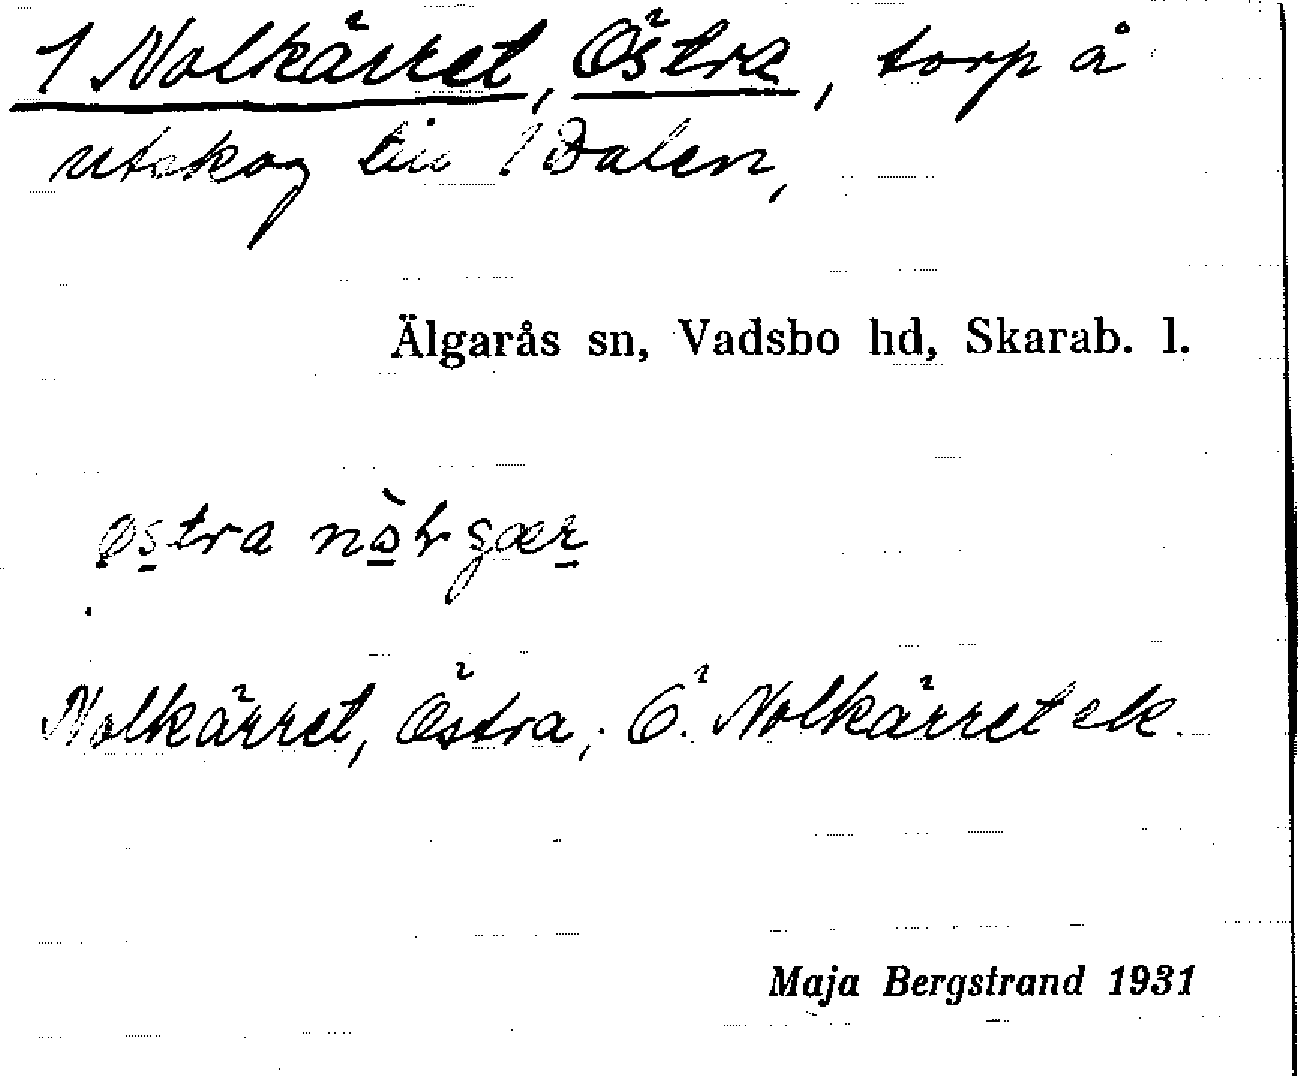 1 Nolkärret, Östra, torp å
utskog till 1 Dalen,
Älgarås sn, Vadsbo hd, Skarab. l.
østra
Nolkärret, Östra; Ö. Nolkärret ek.
Maja Bergstrand 1931